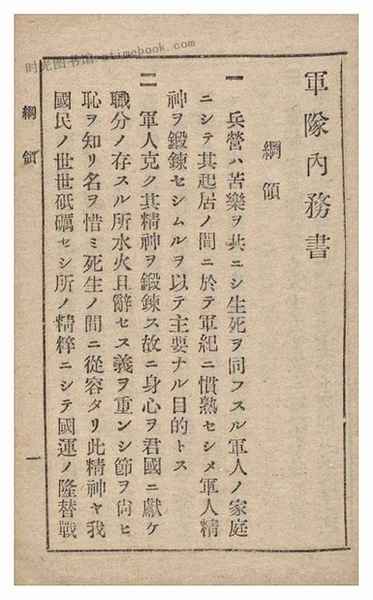 軍隊內務書
綱領
一 兵營ハ苦樂ヲ共ニシ生死ヲ同フスル軍人ノ家庭
ニシテ其起居ノ間ニ於テ軍紀ニ慣熟セシメ軍人精
神ヲ鍛鍊セシムルヲ以テ主要ナル目的トス
二 軍人克ク其精神ヲ鍛鍊ス故ニ身心ヲ君國ニ獻ケ
職分ノ存スル所水火且辭セス義ヲ重ンシ節ヲ尙ヒ
恥ヲ知リ名ヲ惜ミ死生ノ間ニ從容タリ此精神ヤ我
國民ノ世世砥礪セシ所ノ精粹ニシテ國運ノ隆替戰
綱領
一
时光图书馆-atimebook.com